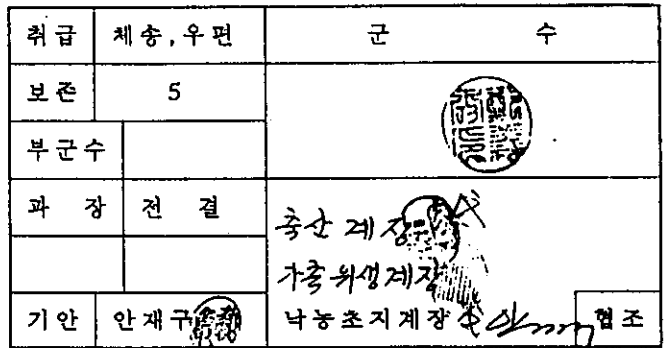 취급 체송,우편 군 수
보존 5
부군수
과 장 전 결
축산계장
가축위생계장
기안 안재구 낙농초지계장 협조